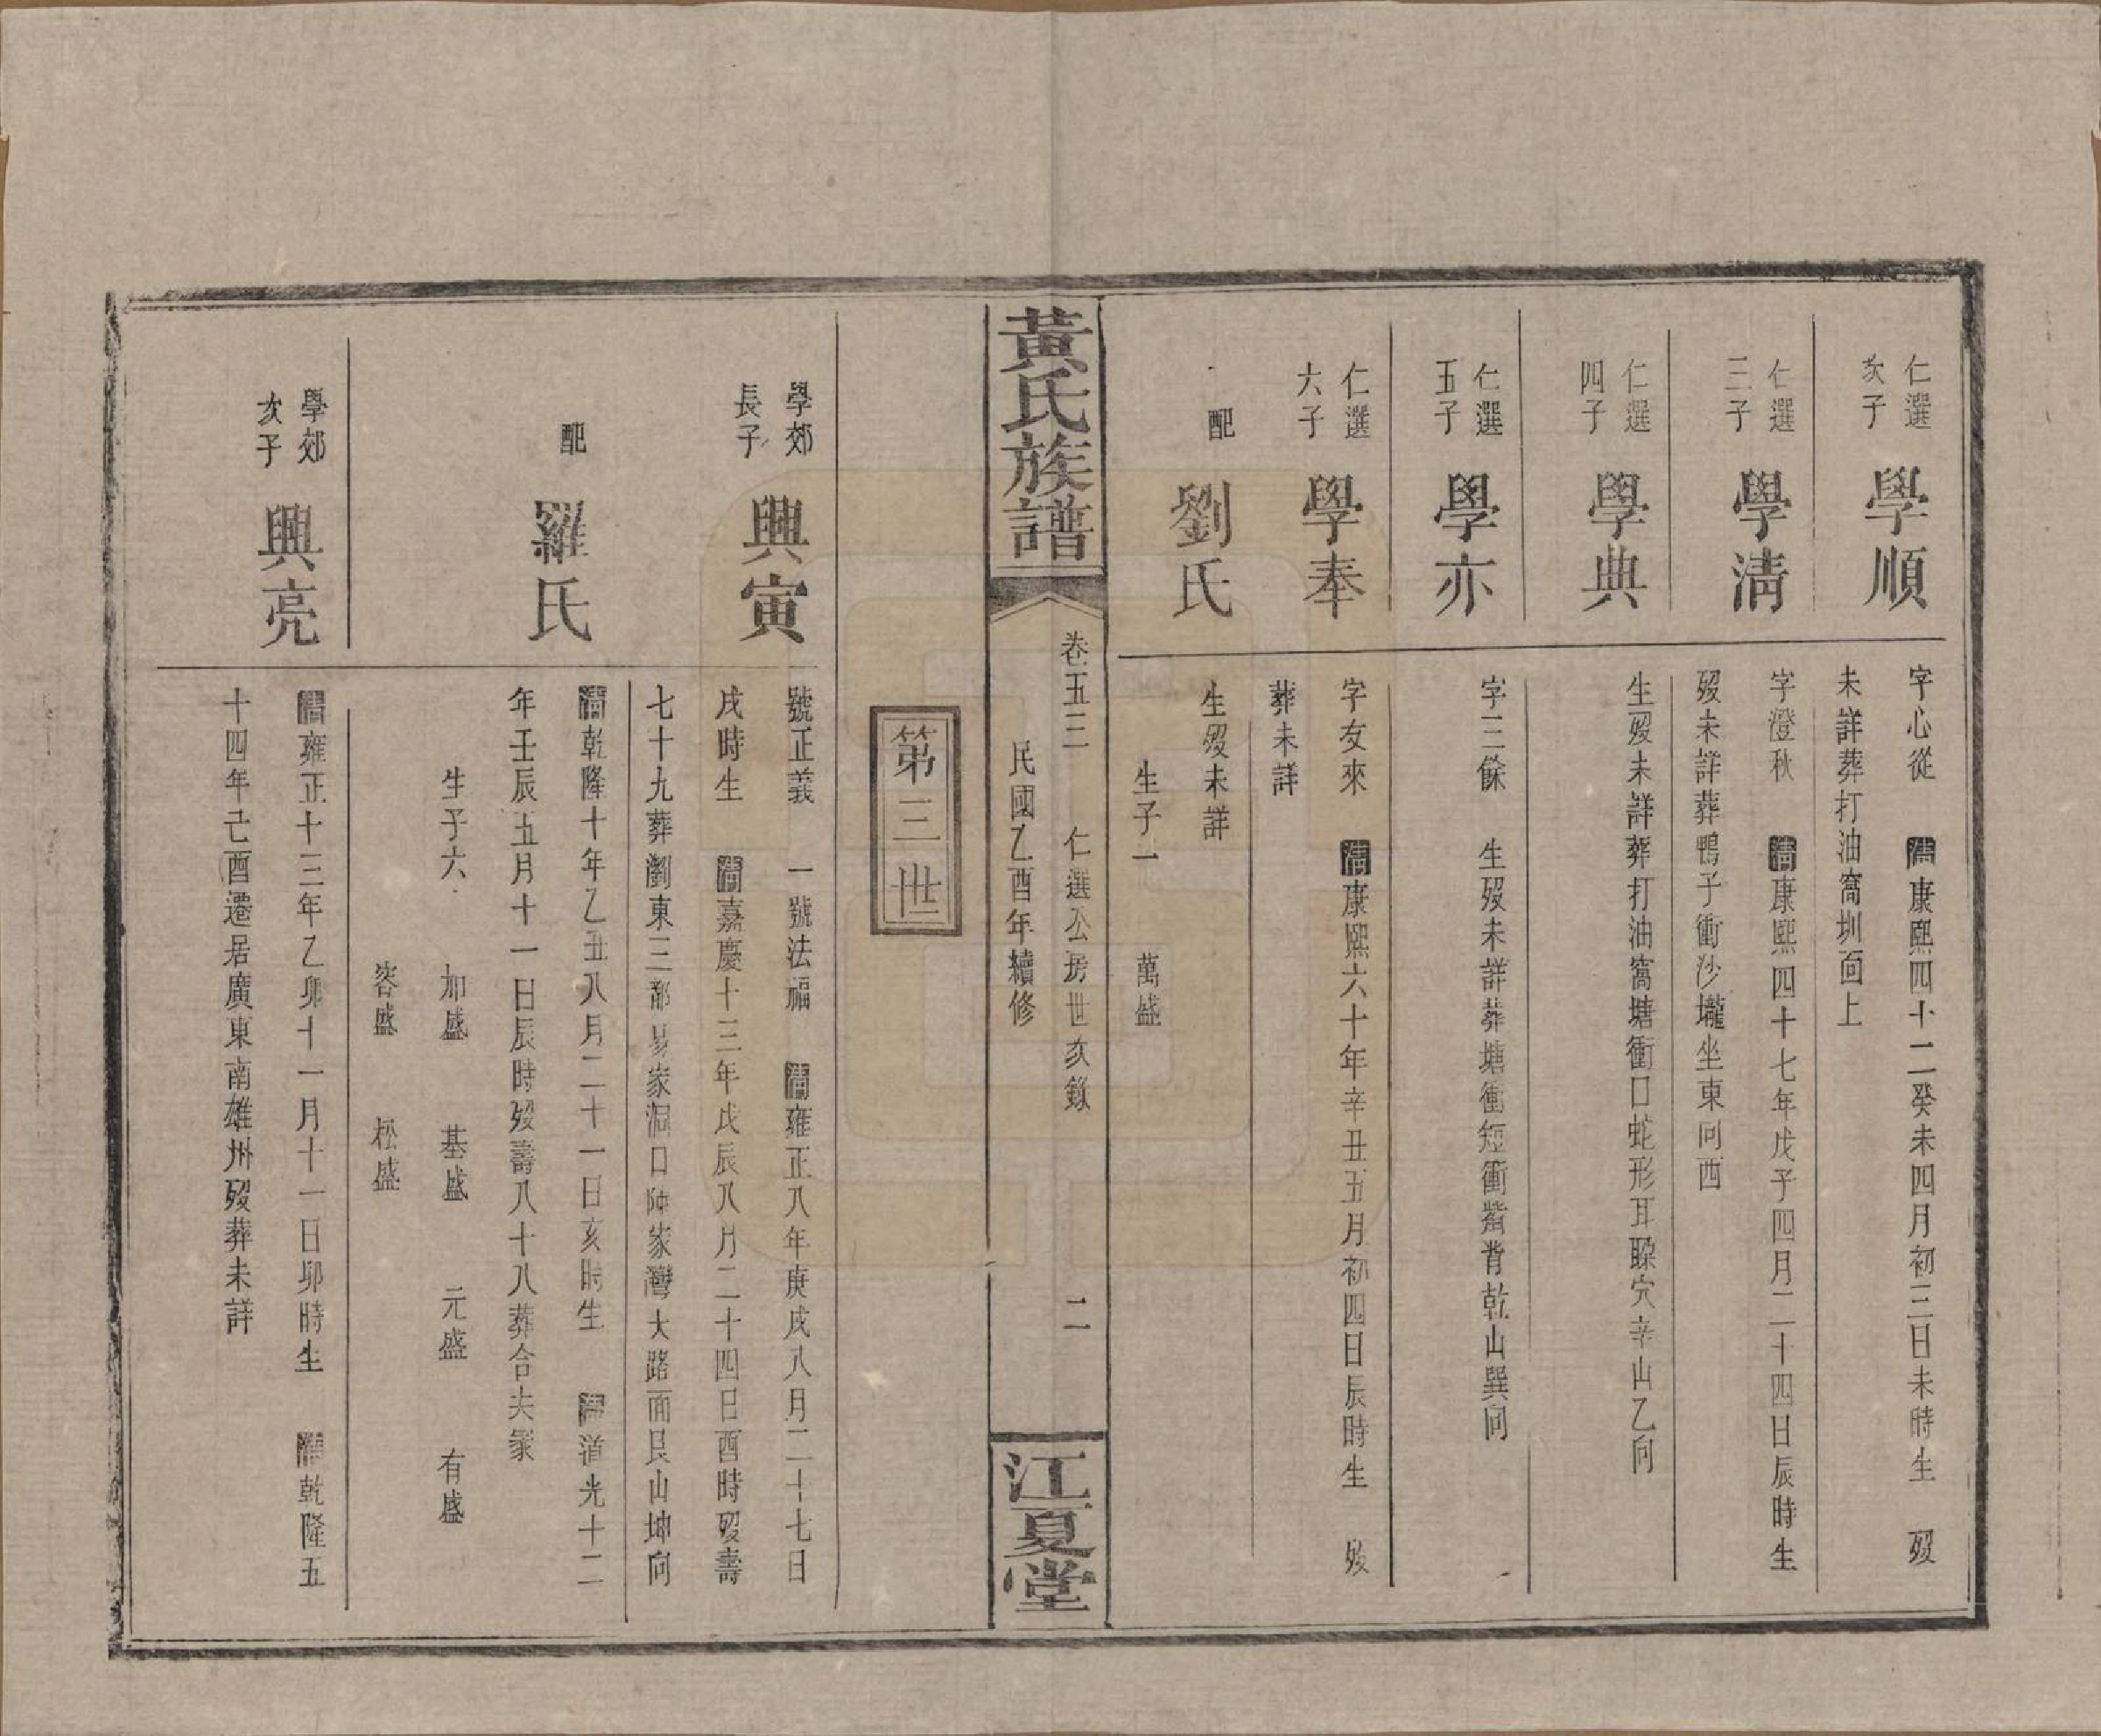 仁選次子
學順
字心從 清康熙四十二癸未四月初三日未時生 歿
未詳葬打油窩圳面上
仁選三子
學清
字澄秋 清康熙四十七年戊子四月二十四日辰時生
歿未詳葬鴨子衝沙壠坐東向西
仁選四子
學典
生歿未詳葬打油窩塘衝口蛇形耳聎穴辛山乙向
仁選五子
學亦
字三餘 生歿未詳葬塘衝短衝背乾山巽向
仁選六子
學奉
字友來 清康熙六十年辛丑五月初四日辰時生 歿
葬未詳
配
劉氏
生歿未詳
生子一 萬盛
黃氏族譜
卷五三 仁選公房世次錄 二
民國乙酉年續修
江夏堂
第三世
學郊長子
興寅
號正義 一號法福 清雍正八年庚戌八月二十七日
戌時生 清嘉慶十三年戊辰八月二十四日酉時歿壽
七十九葬瀏東三都易家洞口陳家灣大路面艮山坤向
配
羅氏
清乾隆十年乙丑八月二十一日亥時生 清道光十二
年壬辰五月十一日辰時歿壽八十八葬合夫冡
生子六 加盛 基盛 元盛 有盛
容盛 松盛
學郊次子
興亮
清雍正十三年乙卯十一月十一日卯時生 清乾隆五
十四年己酉遷居廣東南雄州歿葬未詳